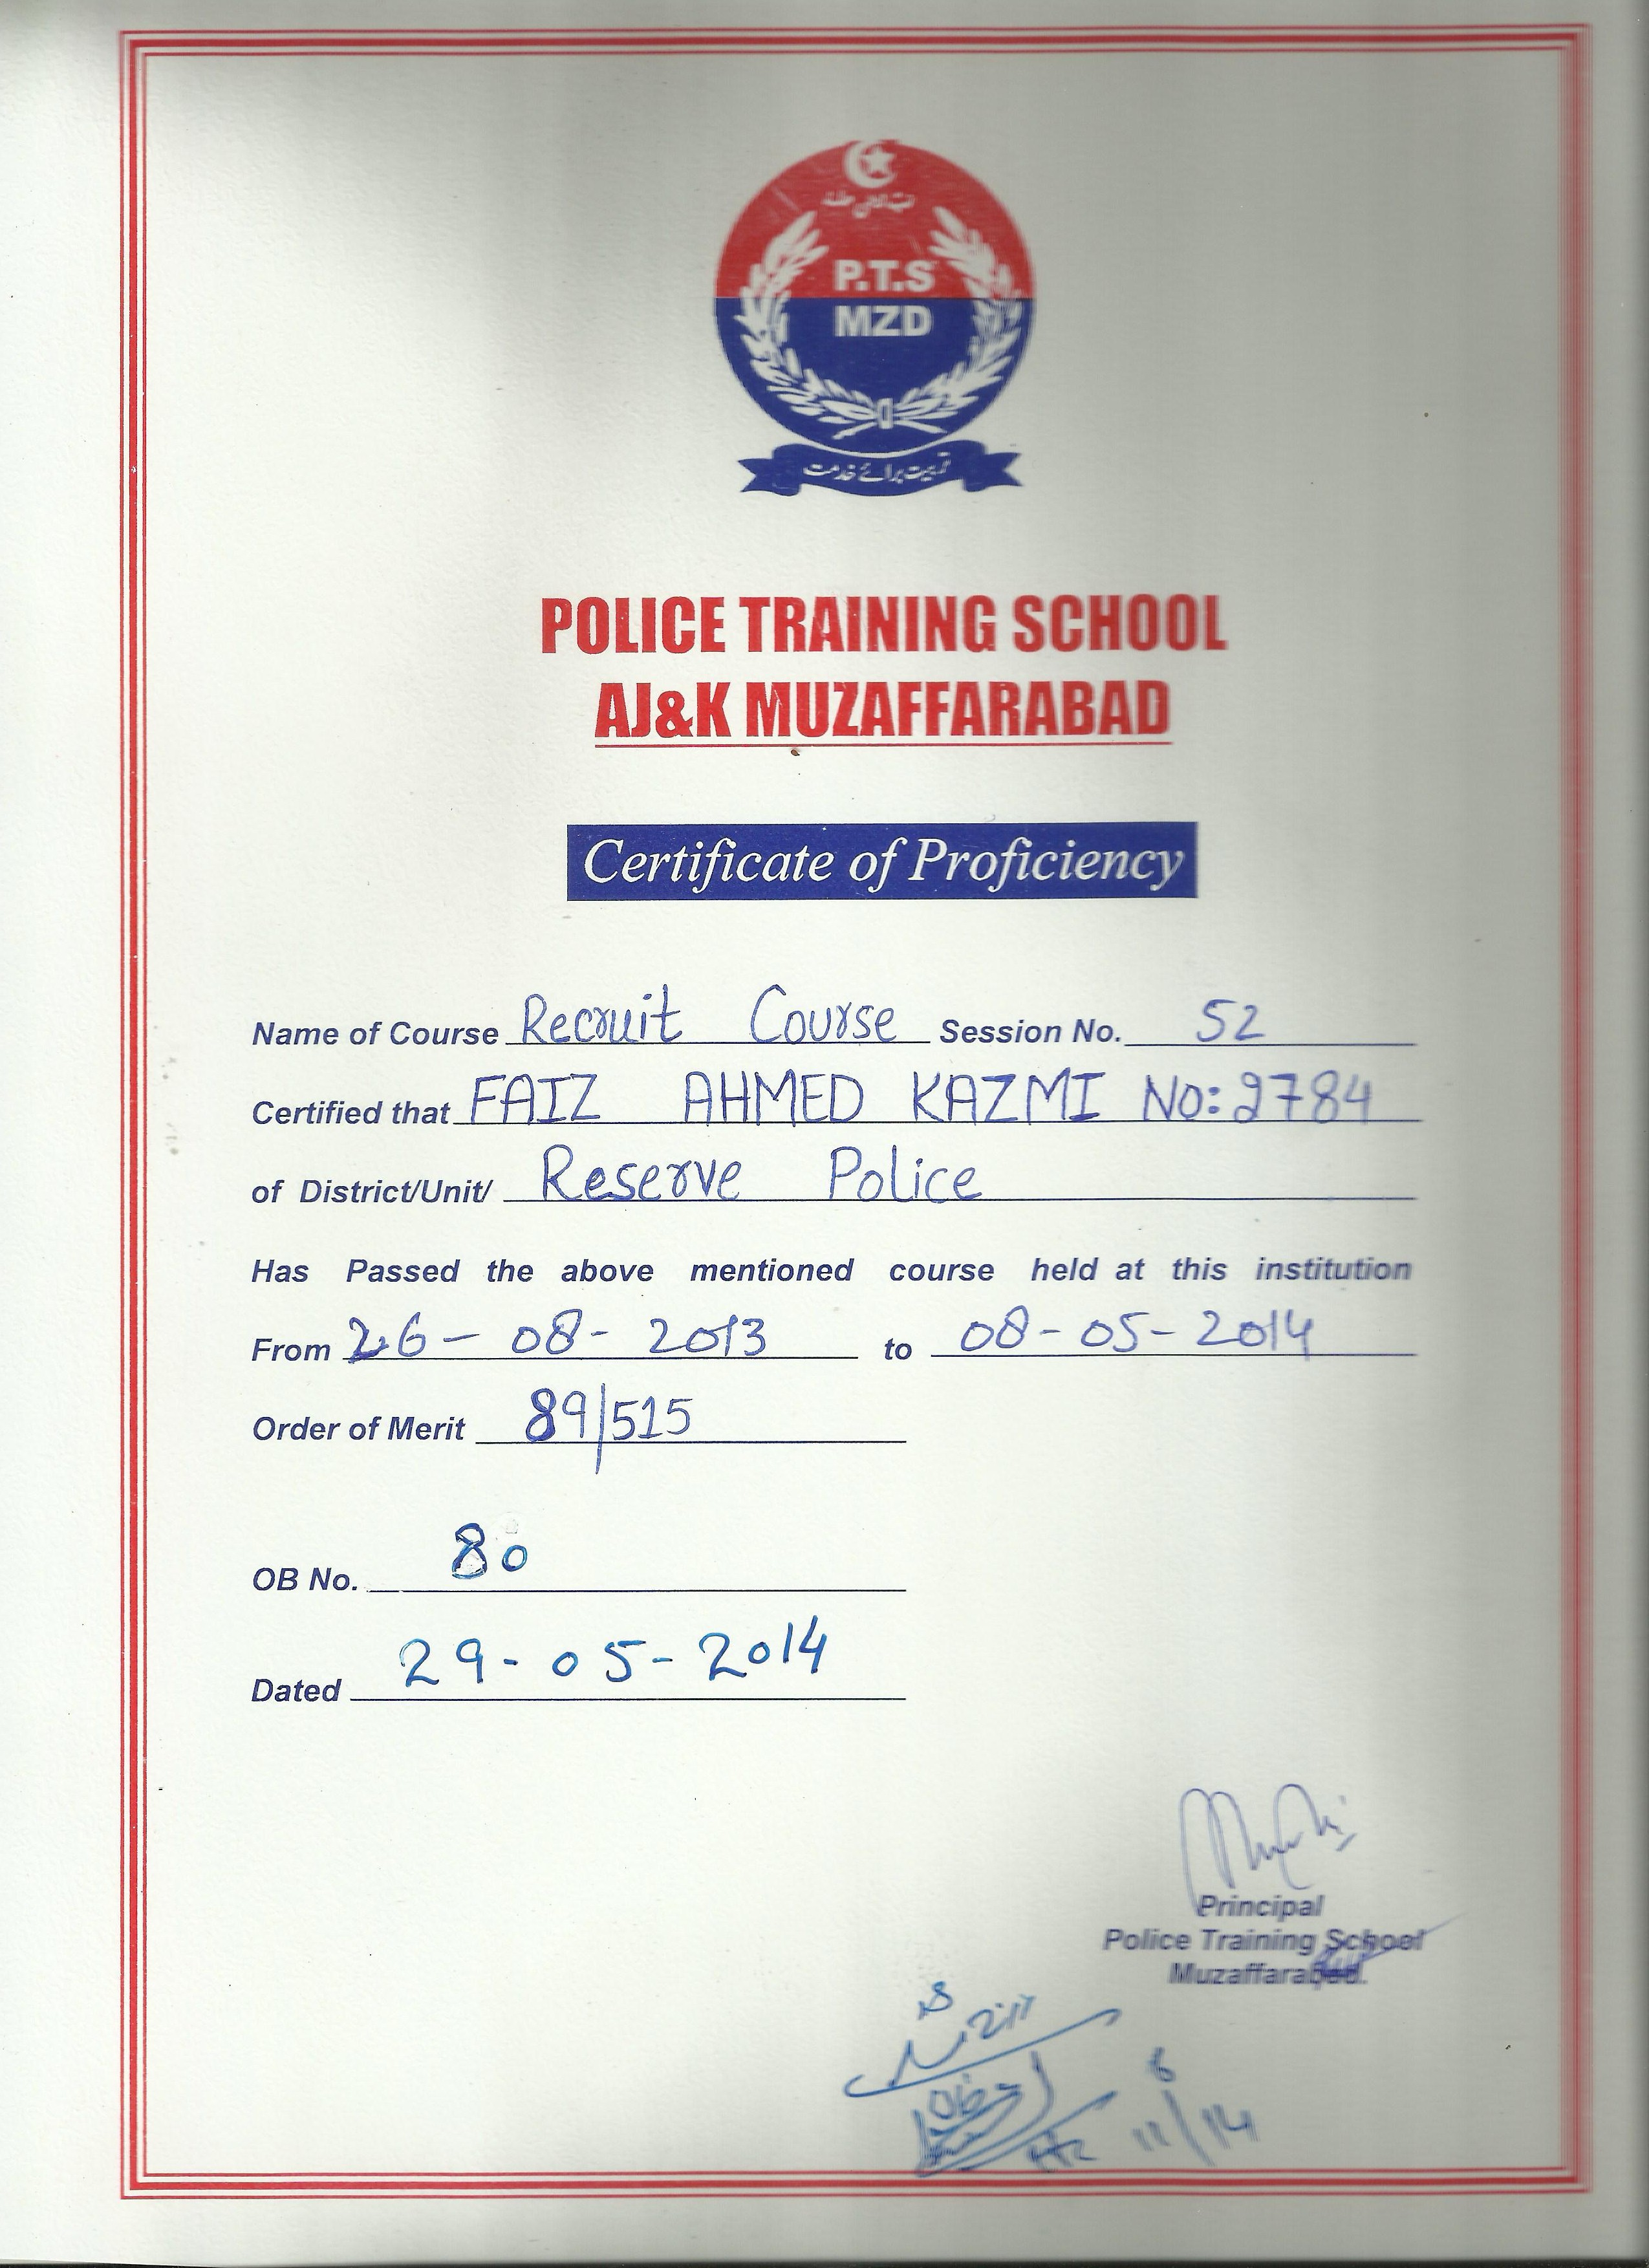 P.T.S
MZD
تربیت برائے خدمت
POLICE TRAINING SCHOOL
AJ&K MUZAFFARABAD
Certificate of Proficiency
Name of Course Recruit Course Session No. 52
Certified that FAIZ AHMED KAZMI NO: 2784
of District/Unit/ Reserve Police
Has Passed the above mentioned course held at this institution
From 26-08-2013 to 08-05-2014
Order of Merit 89/515
OB No. 80
Dated 29-05-2014
Principal
Police Training School
Muzaffarabad.